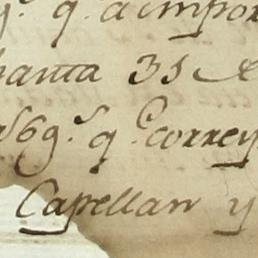 q.e q.e a impor
hanta 35
69.s q.e correy
Capellan y